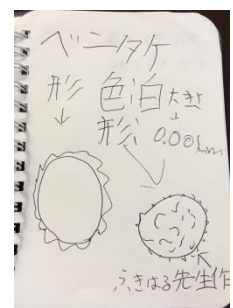 ベニタケ
形 色 泊 大きさ
↓ 形 ↓ 0.001mm
ふきはる先生作